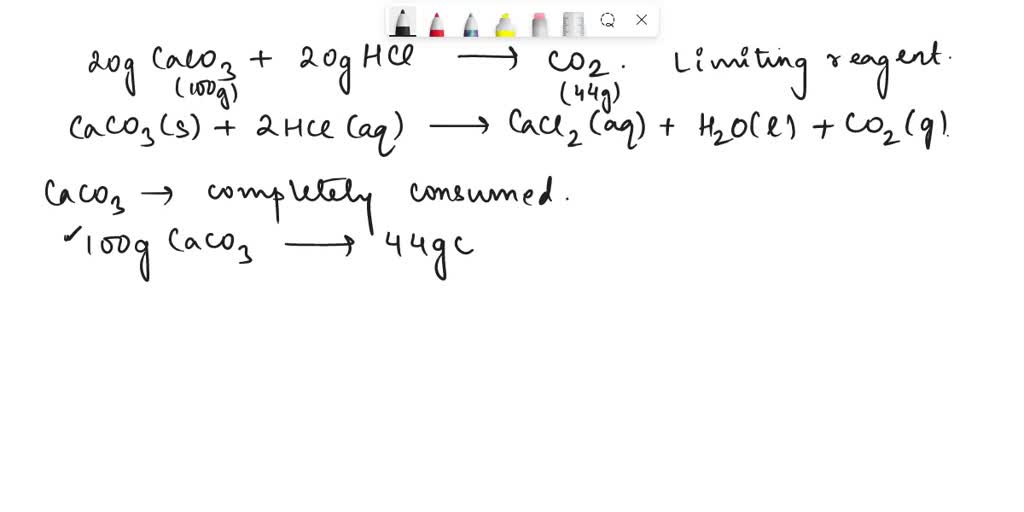 20g CaCO3 + 20g HCl → CO2. Limiting reagent.
(100g) (44g)
CaCO3(s) + 2HCl (aq) → CaCl2(aq) + H2O(l) + CO2(g).
CaCO3 → completely consumed.
✓100g CaCO3 → 44g C